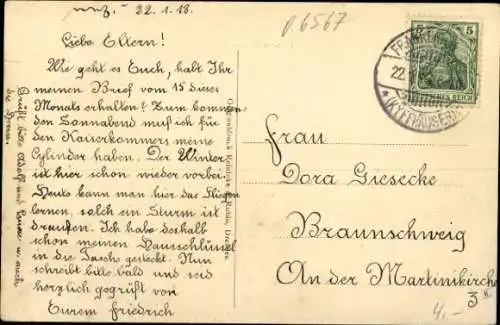 22.1.18.
p.6567
Liebe Eltern!
Wie geht es Euch, habt Ihr
meinen Brief vom 15 dieses
Monats erhalten? Zum kommen-
den Sonnabend muß ich für
den Kaiserkommers meine
Cylinder haben. Der Winter
ist hier schon wieder vorbei.
Heute kann man hier das Fliegen
lernen, solch ein Sturm ist
draußen. Ich habe deshalb
schon meinen Hausschlüssel
in die Tasche gesteckt. Nun
schreibt bitte bald und seid
herzlich gegrüßt von
Eurem Friedrich
Grüßt bitte Adolf und
5
DEUTSCHES REICH
22.
(KYFFHÄUSER)
Frau
Dora Giesecke
Braunschweig
An der Martinikirche
3
4,-